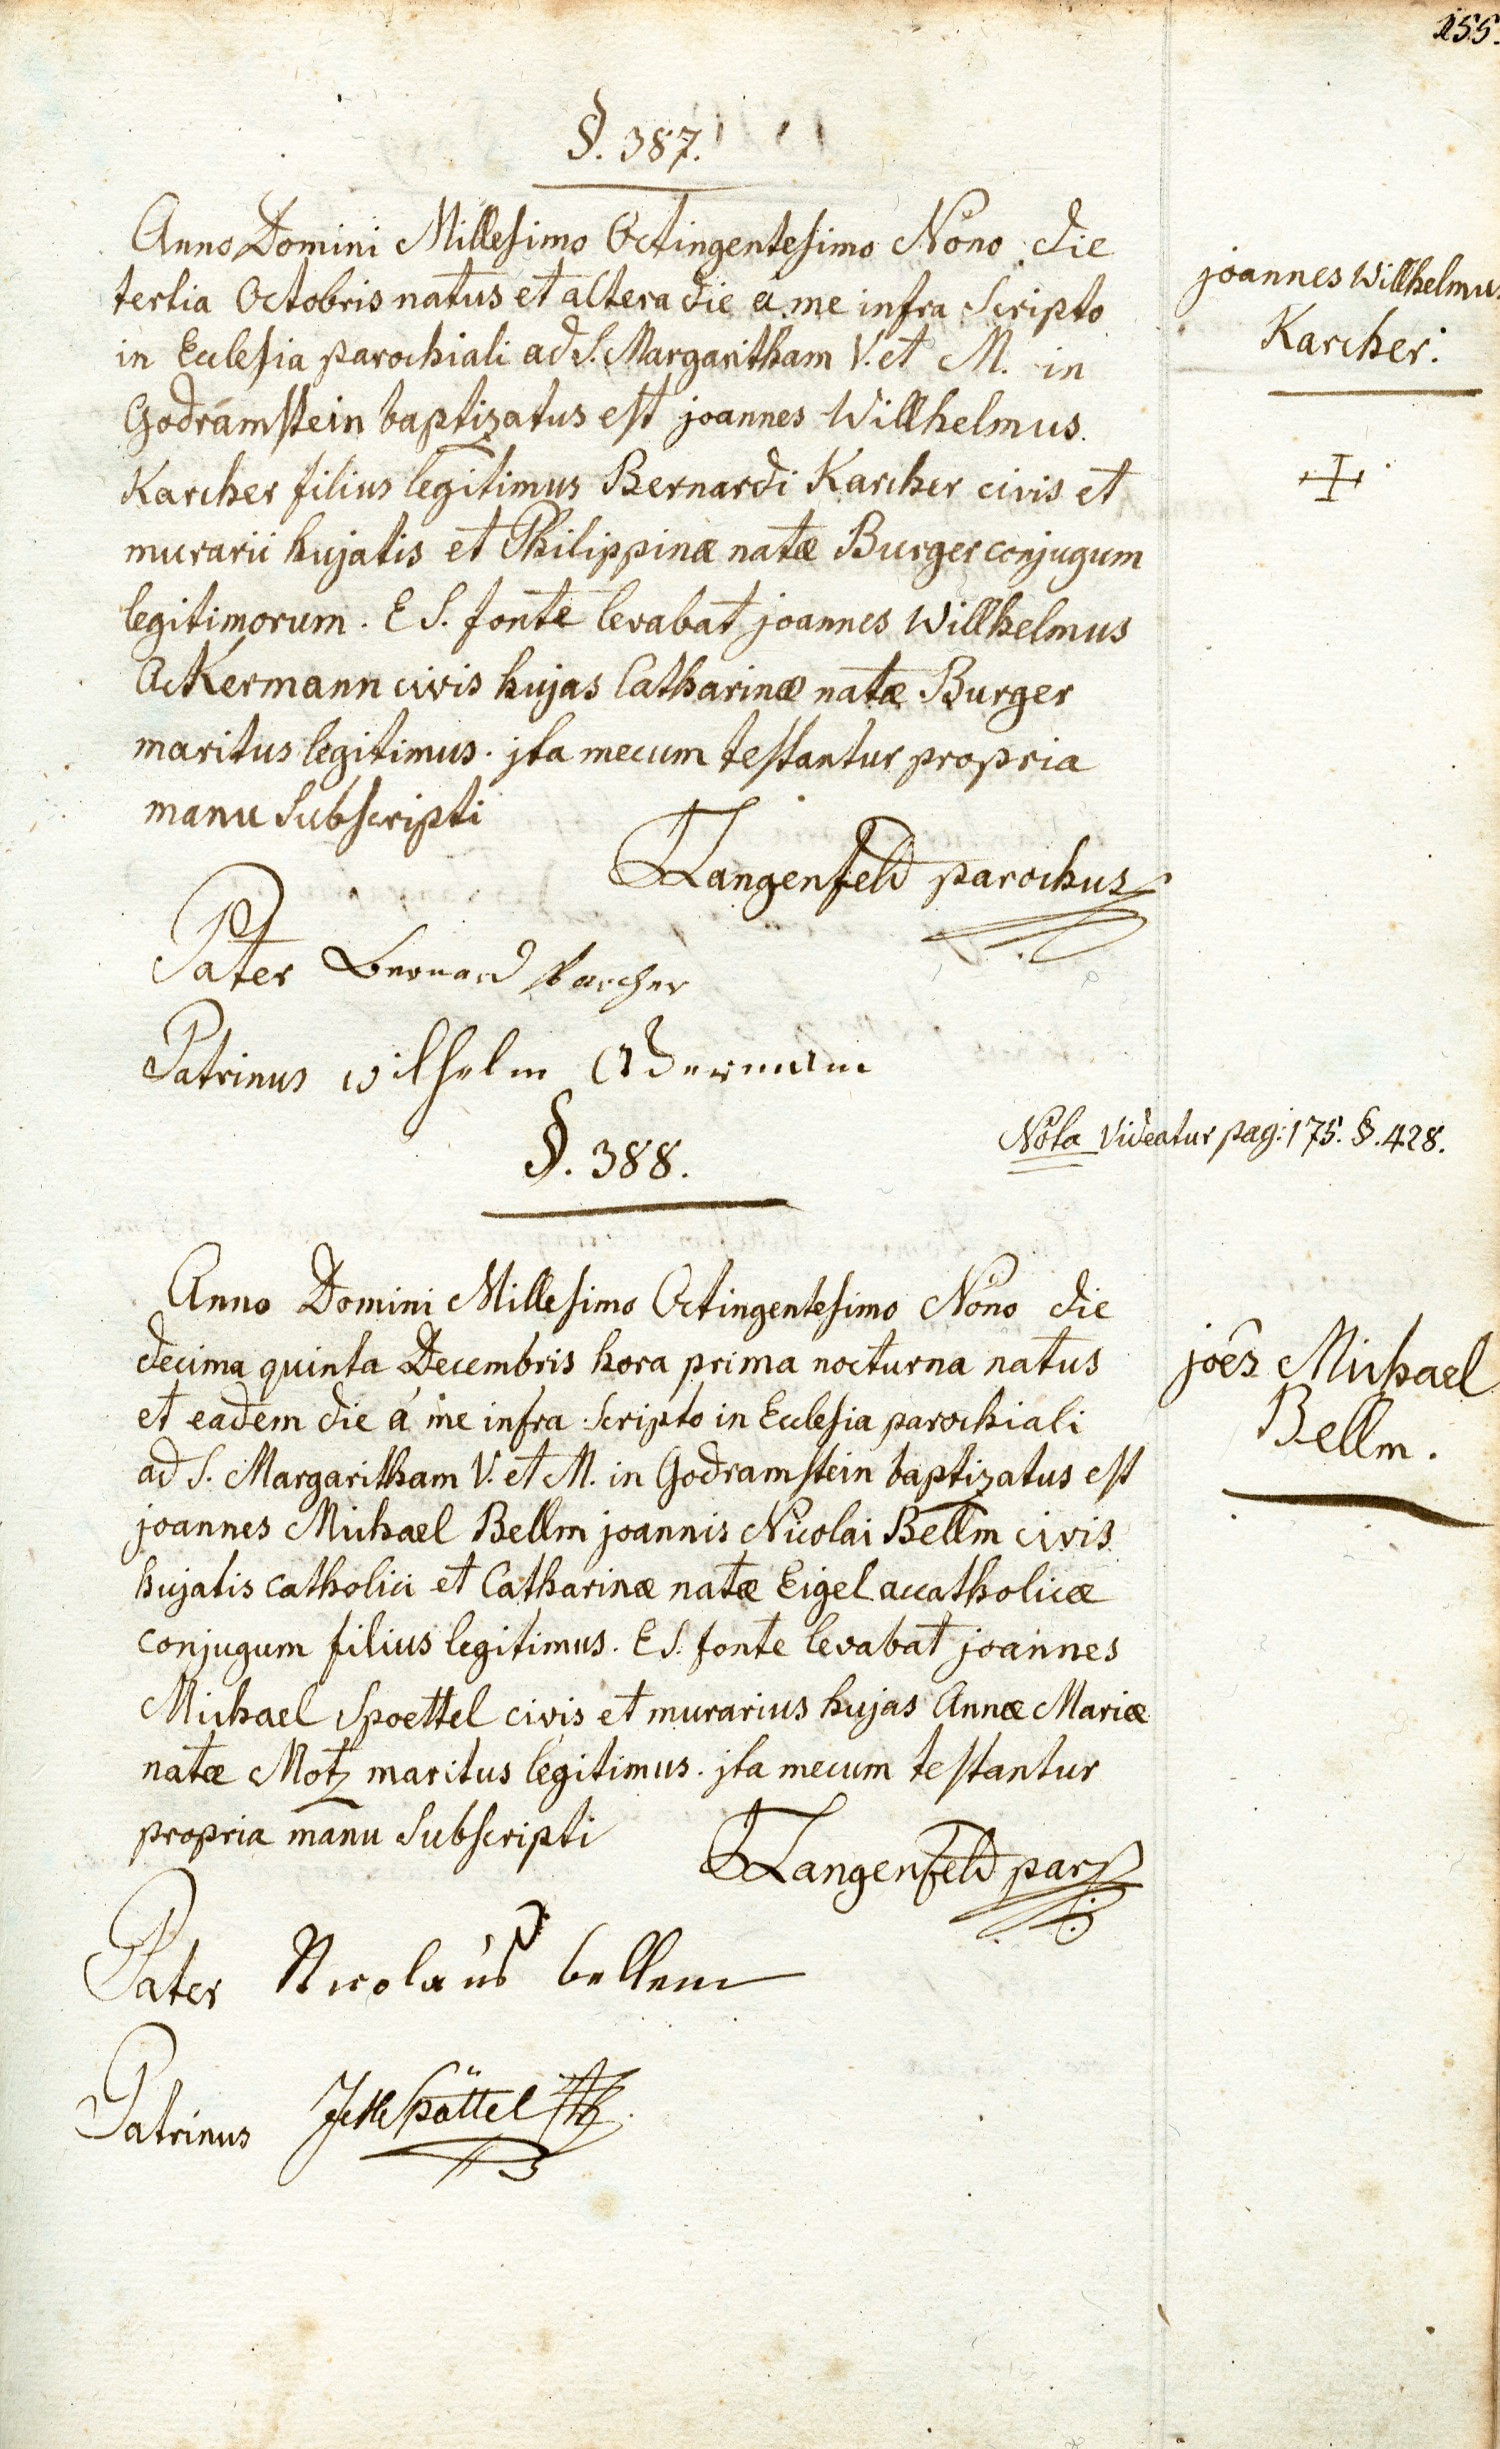 155.
§. 387.
Anno Domini Millesimo Octingentesimo Nono die
tertia Octobris natus et altera die á me infra Scripto
in Ecclesia parochiali ad S. Margaritham V. et M. in
Godramstein baptizatus est joannes Willhelmus.
Karcher filius legitimus Bernardi Karcher civis et
murarii hujatis et Philippinæ natæ Burger conjugum
legitimorum. E S. fonte levabat joannes Willhelmus
Ackermann civis hujas Catharinæ natæ Burger
maritus legitimus. jta mecum testantur propria
manu Subscripti
Langenfeld parochus
Pater Bernard Karcher
Patrinus wilhelm Ackermann
joannes Willhelmus
Karcher.
§. 388.
Nota Videatur pag: 175. §. 428.
Anno Domini Millesimo Octingentesimo Nono die
decima quinta Decembris hora prima nocturna natus
et eadem die á me infra Scripto in Ecclesia parochiali
ad S. Margaritham V. et M. in Godramstein baptizatus est
joannes Michael Bellm joannis Nicolai Bellm civis
hujatis catholici et Catharinæ natæ Eigel accatholicæ
conjugum filius legitimus. E S. fonte levabat joannes
Michael Spoettel civis et murarius hujas Annæ Mariæ
natæ Motz maritus legitimus. jta mecum testantur
propria manu Subscripti
Langenfeld par
Pater Nicolaus bellem
Patrinus Spöttel
joês Michael
Bellm.